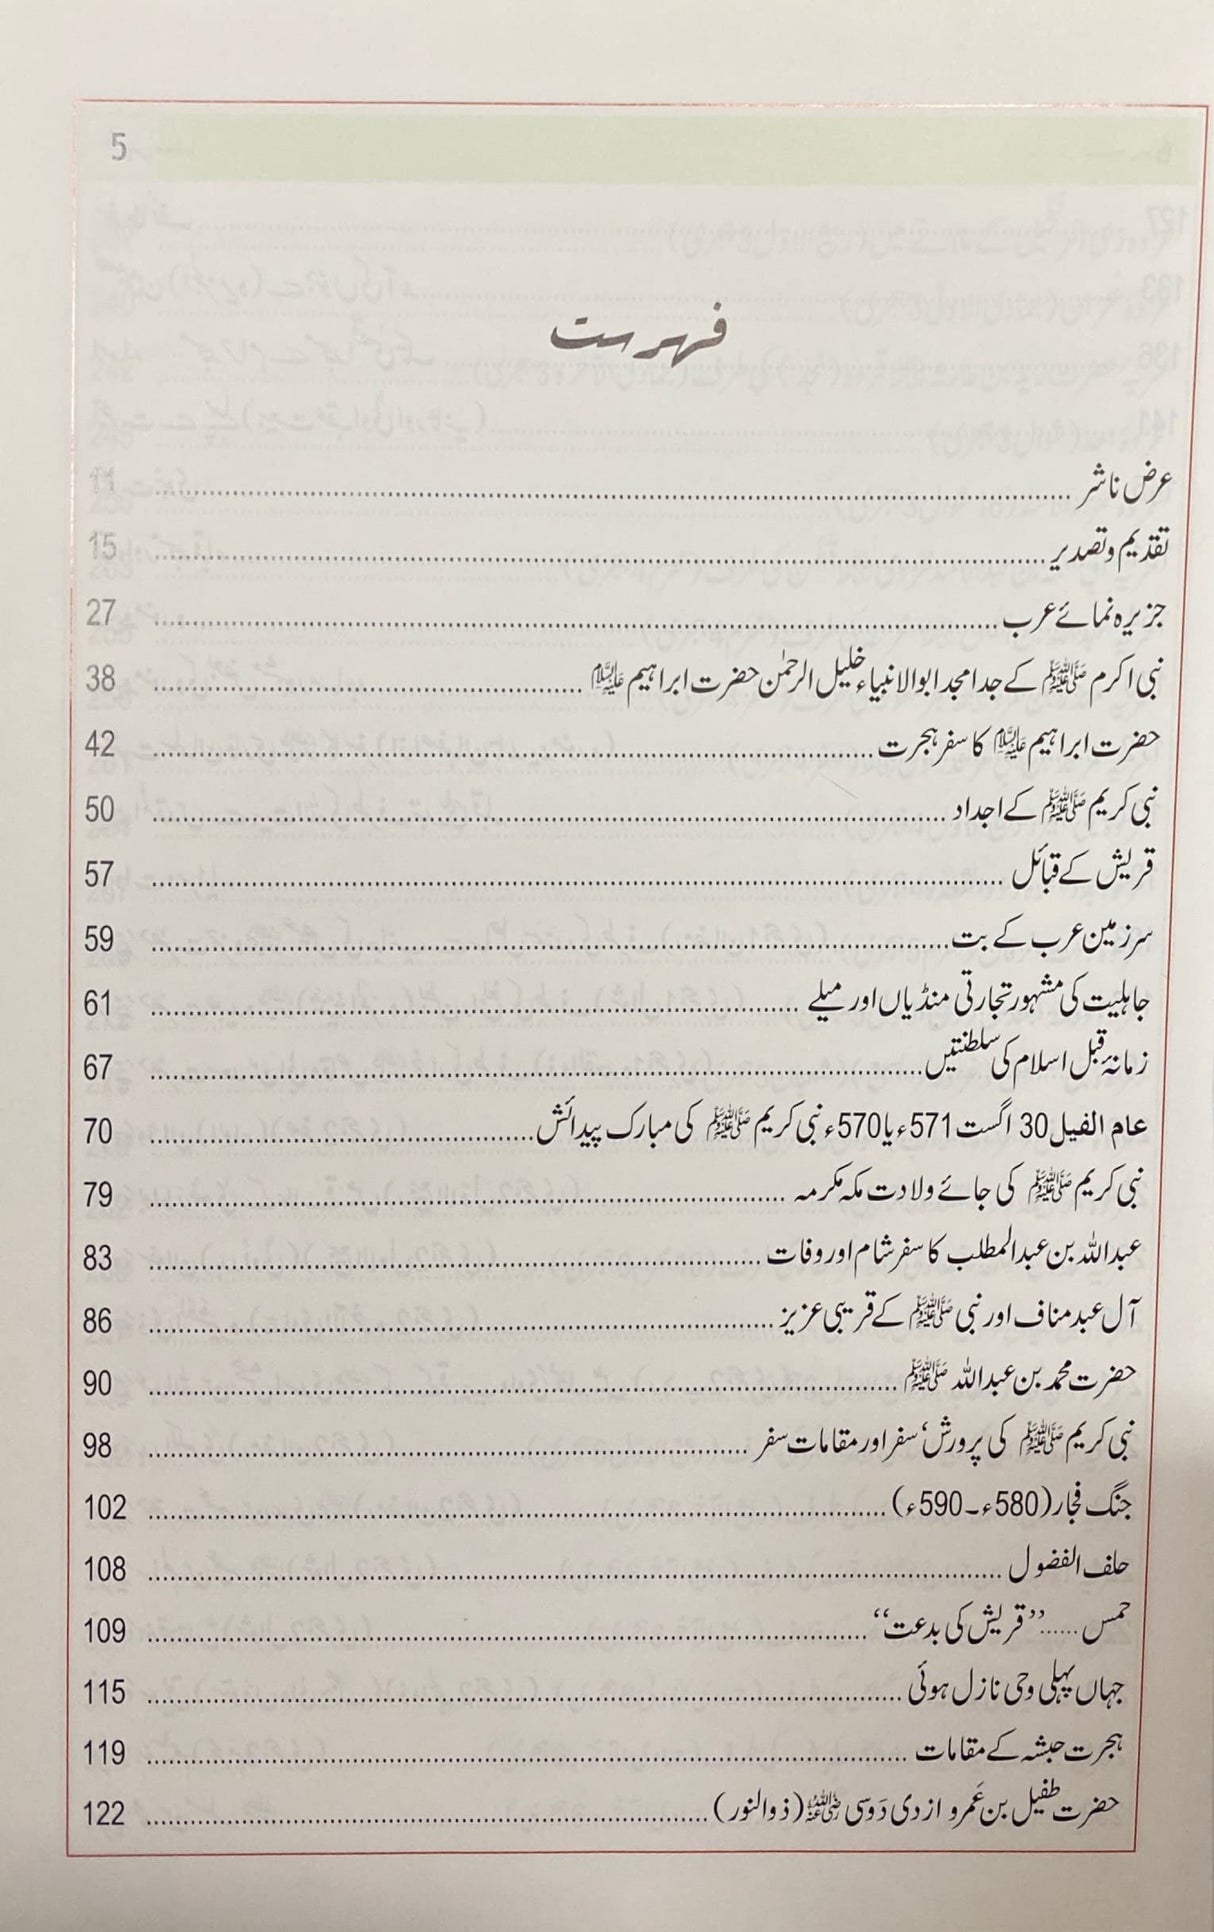 5
فہرست
عرض ناشر ........ 11
تقدیم و تصدیر ........ 15
جزیرہ نمائے عرب ........ 27
نبی اکرم ﷺ کے جد امجد ابوالانبیاء خلیل الرحمٰن حضرت ابراہیم علیہ السلام ........ 38
حضرت ابراہیم علیہ السلام کا سفر ہجرت ........ 42
نبی کریم ﷺ کے اجداد ........ 50
قریش کے قبائل ........ 57
سرزمین عرب کے بت ........ 59
جاہلیت کی مشہور تجارتی منڈیاں اور میلے ........ 61
زمانۂ قبل اسلام کی سلطنتیں ........ 67
عام الفیل 30 اگست 571ء یا 570ء نبی کریم ﷺ کی مبارک پیدائش ........ 70
نبی کریم ﷺ کی جائے ولادت مکہ مکرمہ ........ 79
عبداللہ بن عبدالمطلب کا سفر شام اور وفات ........ 83
آل عبد مناف اور نبی ﷺ کے قریبی عزیز ........ 86
حضرت محمد بن عبداللہ ﷺ ........ 90
نبی کریم ﷺ کی پرورش، سفر اور مقامات سفر ........ 98
جنگ فجار (580ء۔590ء) ........ 102
حلف الفضول ........ 108
حمس ...... ”قریش کی بدعت“ ........ 109
جہاں پہلی وحی نازل ہوئی ........ 115
ہجرت حبشہ کے مقامات ........ 119
حضرت طفیل بن عَمرو ازدی دَوسی رضی اللہ عنہ (ذوالنور) ........ 122